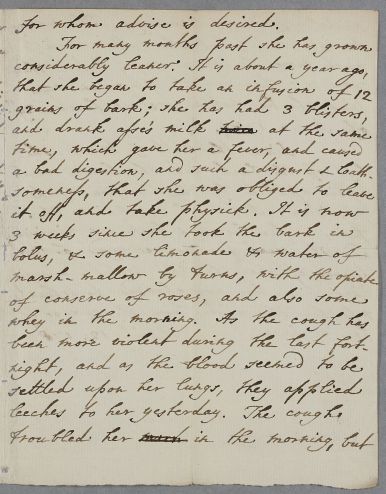 for whom advise is desired.
For many months past she has grown
considerably leaner. It is about a year ago,
that she began to take an infusion of 12
grains of bark; she has had 3 blisters,
and drank asse's milk at the same
time, which gave her a fever, and caused
a bad digestion, and such a disgust & loath-
someness, that she was obliged to leave
it off, and take physick. It is now
3 weeks since she took the bark in
bolus, & some lemonade & water of
marsh-mallow by turns, with the opiate
of conserve of roses, and also some
whey in the morning. As the cough has
been more violent during the last fort-
night, and as the blood seemed to be
settled upon her lungs, they applied
leeches to her yesterday. The cough
troubled her much in the morning, but